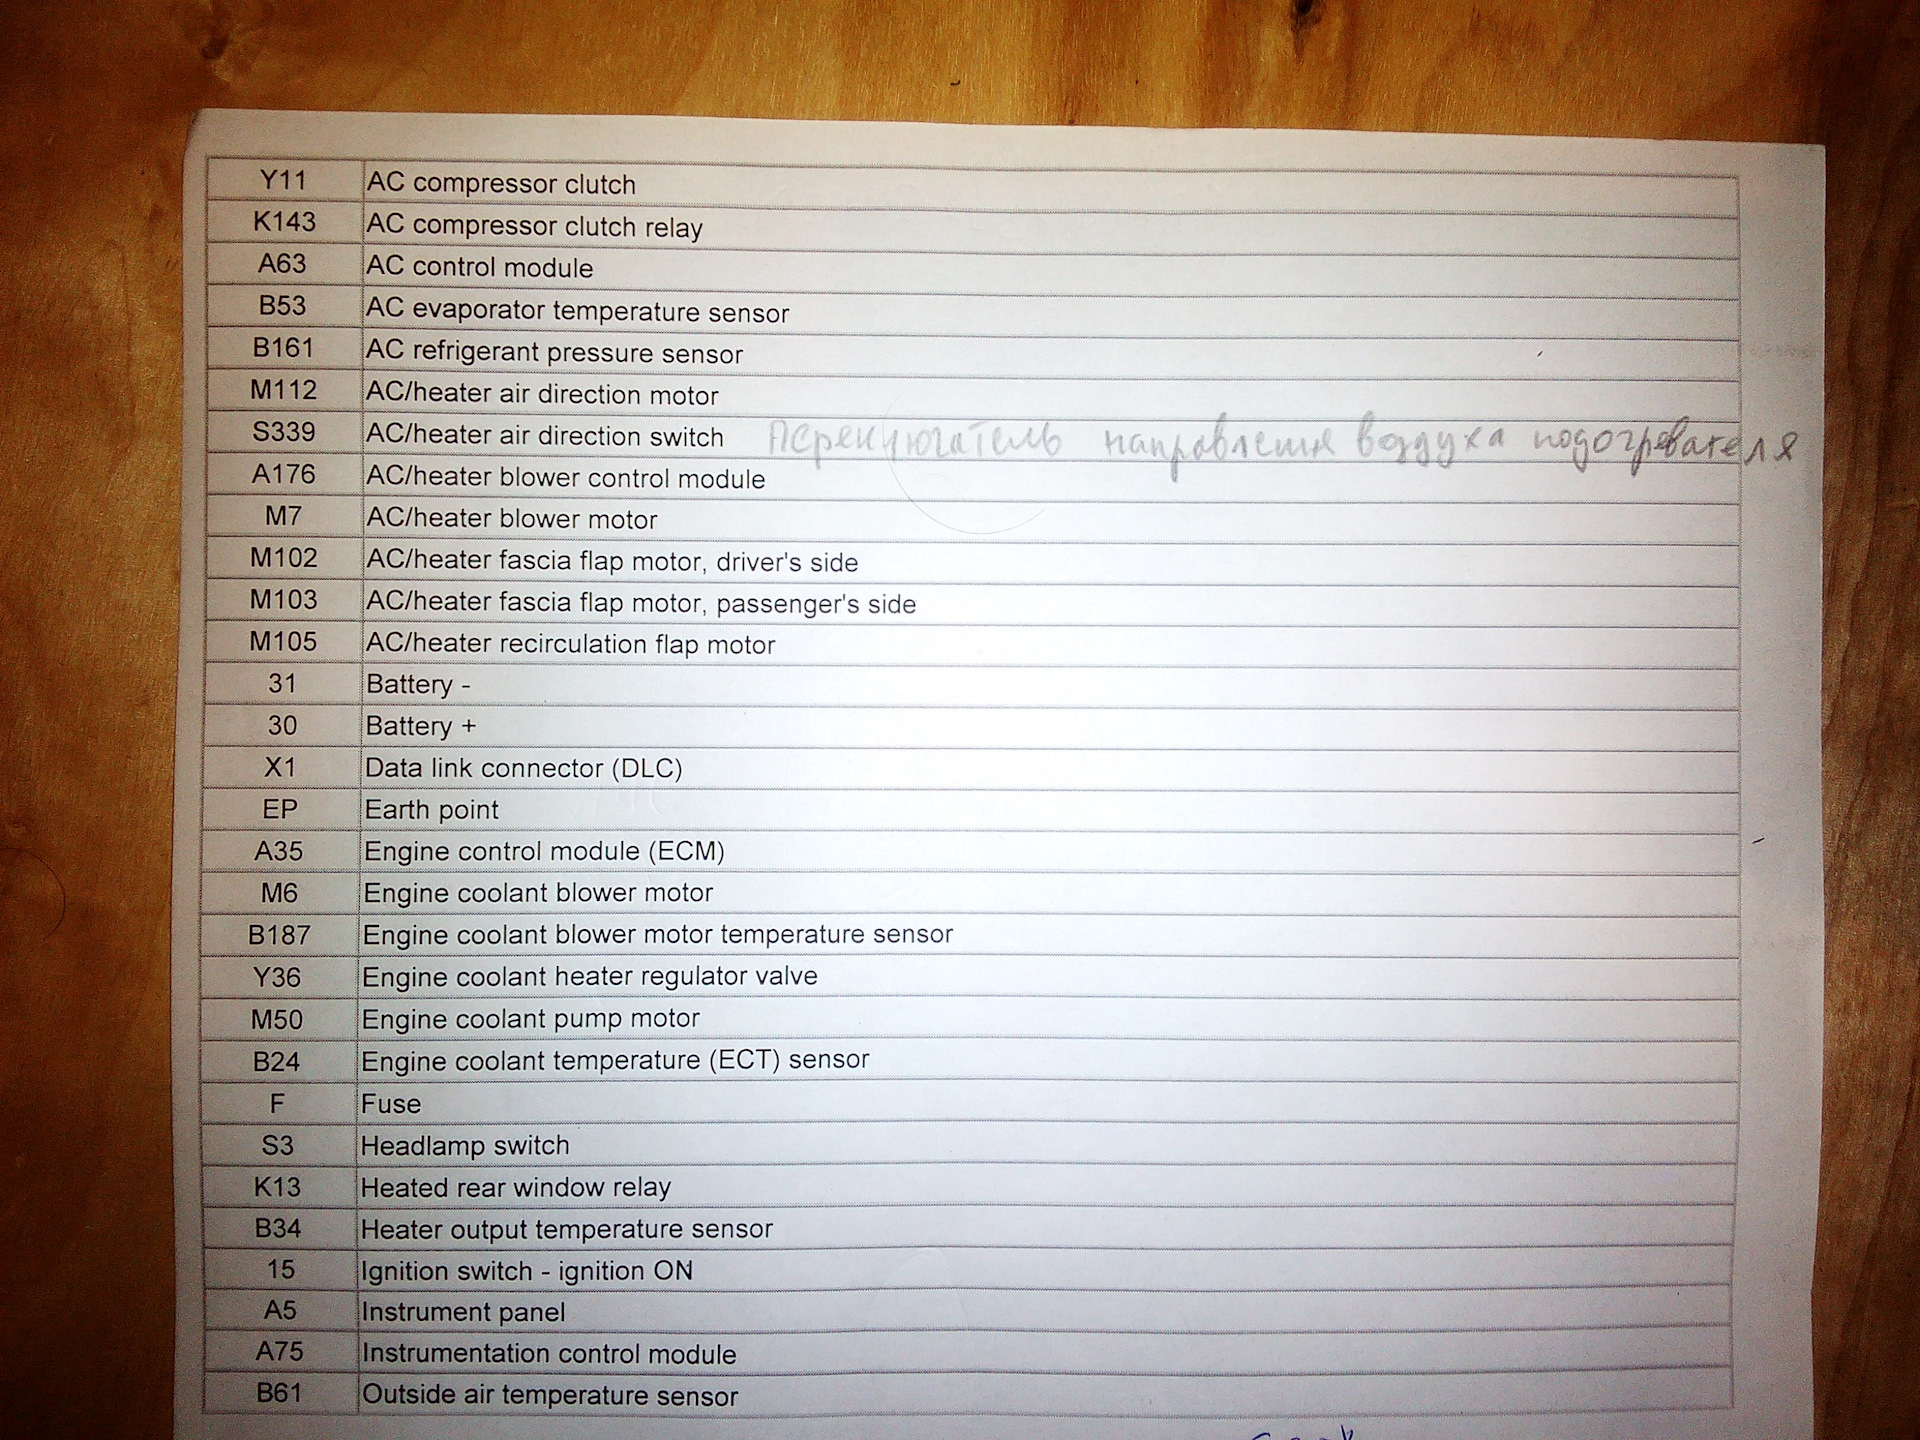 Y11 AC compressor clutch
K143 AC compressor clutch relay
A63 AC control module
B53 AC evaporator temperature sensor
B161 AC refrigerant pressure sensor
M112 AC/heater air direction motor
S339 AC/heater air direction switch Переключатель направления воздуха подогревателя
A176 AC/heater blower control module
M7 AC/heater blower motor
M102 AC/heater fascia flap motor, driver's side
M103 AC/heater fascia flap motor, passenger's side
M105 AC/heater recirculation flap motor
31 Battery -
30 Battery +
X1 Data link connector (DLC)
EP Earth point
A35 Engine control module (ECM)
M6 Engine coolant blower motor
B187 Engine coolant blower motor temperature sensor
Y36 Engine coolant heater regulator valve
M50 Engine coolant pump motor
B24 Engine coolant temperature (ECT) sensor
F Fuse
S3 Headlamp switch
K13 Heated rear window relay
B34 Heater output temperature sensor
15 Ignition switch - ignition ON
A5 Instrument panel
A75 Instrumentation control module
B61 Outside air temperature sensor